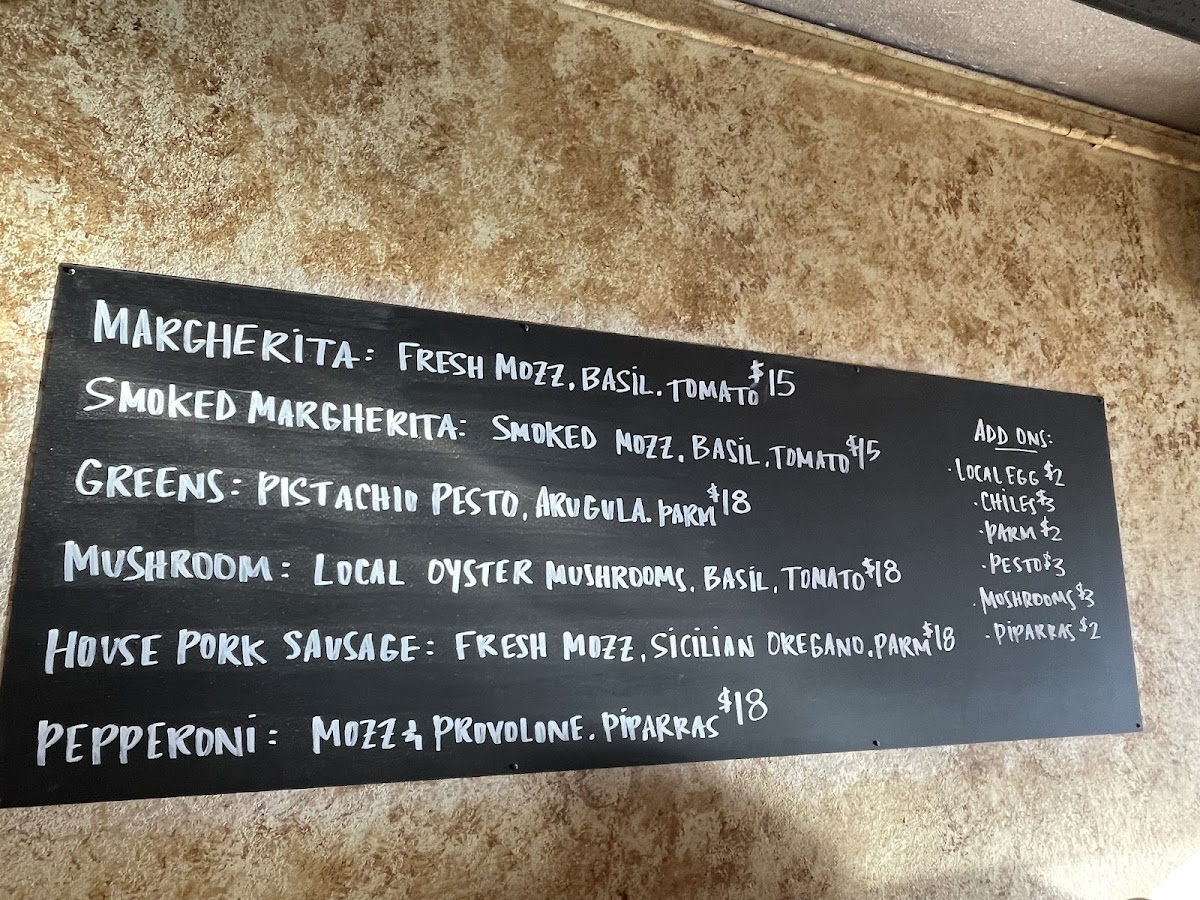 MARGHERITA: FRESH MOZZ, BASIL, TOMATO $15
SMOKED MARGHERITA: SMOKED MOZZ, BASIL, TOMATO $15
GREENS: PISTACHIO PESTO, ARUGULA, PARM $18
MUSHROOM: LOCAL OYSTER MUSHROOMS, BASIL, TOMATO $18
HOUSE PORK SAUSAGE: FRESH MOZZ, SICILIAN OREGANO, PARM $18
PEPPERONI: MOZZ & PROVOLONE, PIPARRAS $18
ADD ONS:
· LOCAL EGG $2
· CHILES $3
· PARM $2
· PESTO $3
· MUSHROOMS $3
· PIPARRAS $2